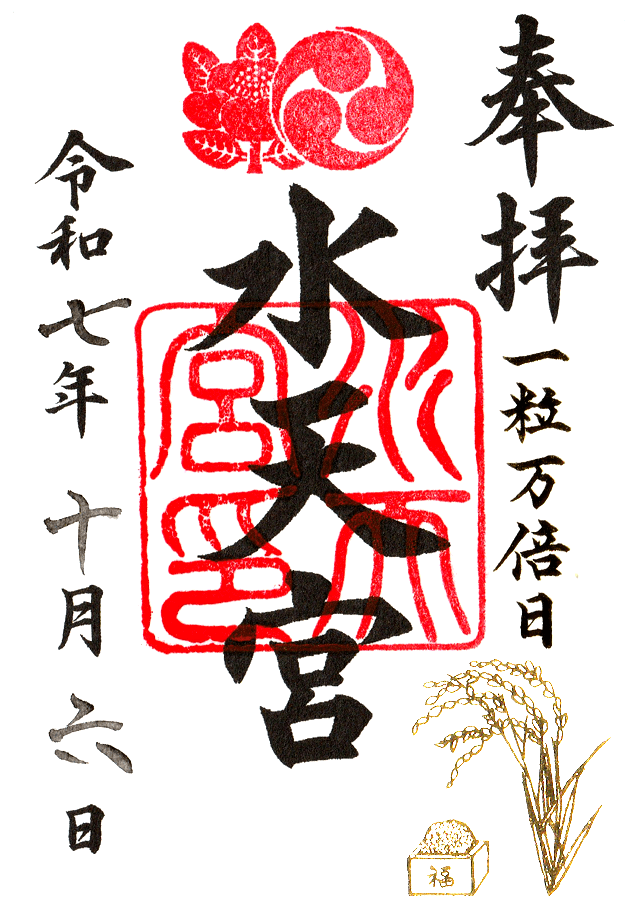 奉拝
一粒万倍日
水天宮
水天宮印
令和七年十月六日
福